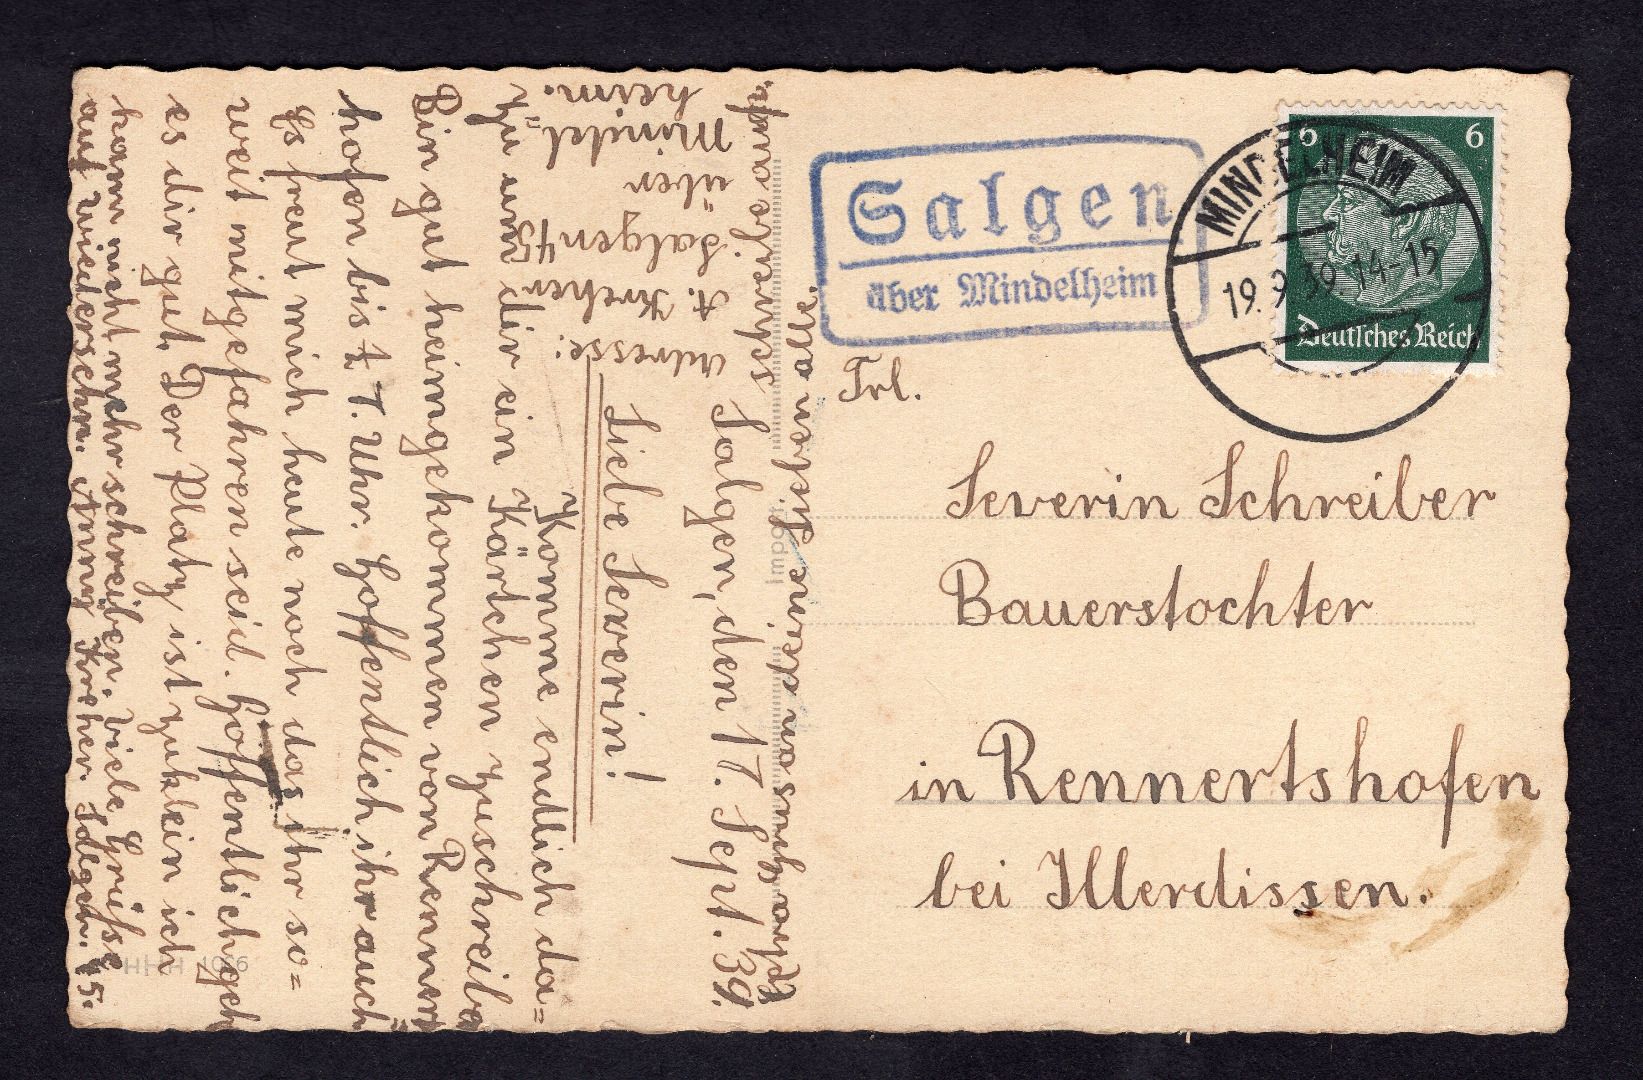 Salgen
über Mindelheim
MINDELHEIM
19.9.39.14-15
6 6
Deutsches Reich
Frl.
Severin Schreiber
Bauerstochter
in Rennertshofen
bei Illerdissen.
Salgen, den 17. Sept. 39.
Liebe Severin!
Komme endlich da=
zu um dir ein Kärtchen zuschreiben
Bin gut heimgekommen von Renner
hofen bis ½ 7. Uhr. Hoffentlich ihr auch
Es freut mich heute noch das ihr so=
weit mitgefahren seid. Hoffentlich geht
es dir gut. Der Platz ist zuklein ich
kann nicht mehr schreiben. Viele Grüße
auf wiedersehn. Anni Kreher. Salgen. 45.
Adresse:
A. Kreher
Salgen 45
über
Mindel=
heim.
deine Lieben alle.
HHH